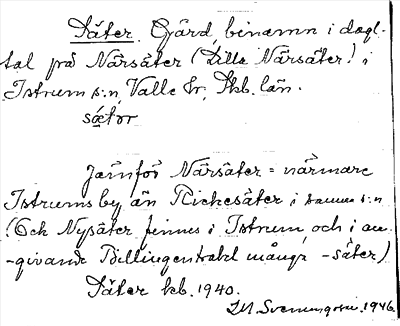 Säter. Gård, binamn i dagl.
tal på Närsäter (Lille Närsäter!) i
Istrum s:n, Valle hr, Skb. län.
sætər
Jämför Närsäter = närmare
Istrums by än Rickesäter i samma s:n
(Och Nysäter finnes i Istrum, och i an-
-givande Billingentrakt många -säter)
Säter kb. 1940.
1946.